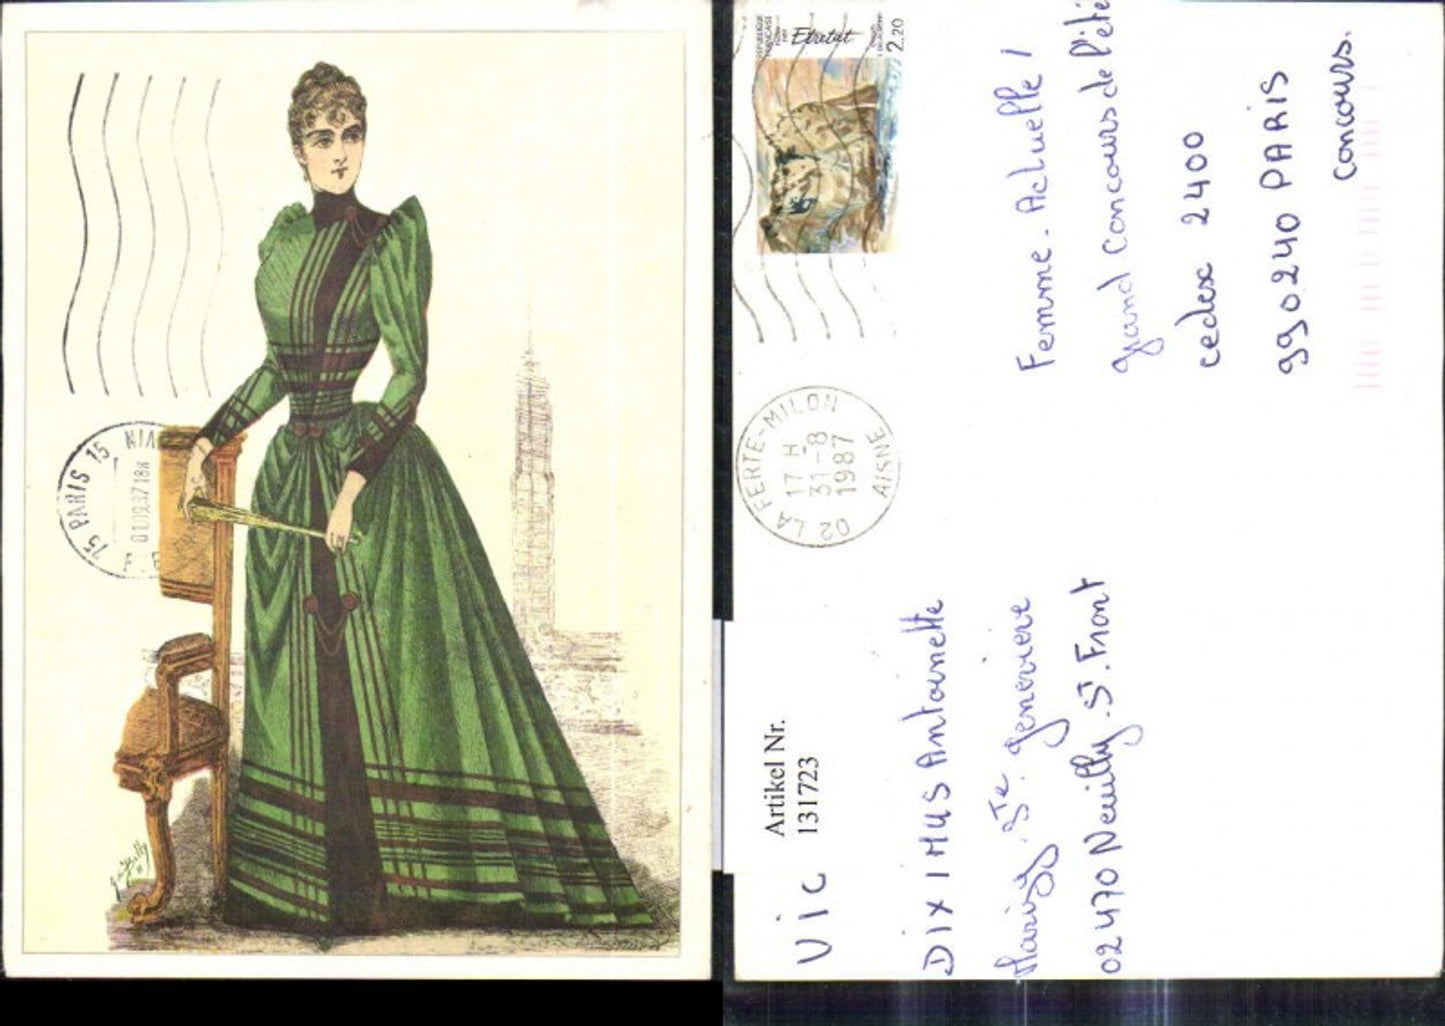 75 PARIS 15
RÉPUBLIQUE
FRANÇAISE
Etretat
2,20
02 LA FERTE-MILON
17 H
31-8
1987
AISNE
Femme. Actuelle !
grand concours de l'été
cedex 2400
99240 PARIS
concours.
Artikel Nr.
131723
Vic
DIXIMUS Antoinette
Marizy. Ste. genevieve
02470 Neuilly. St. Front